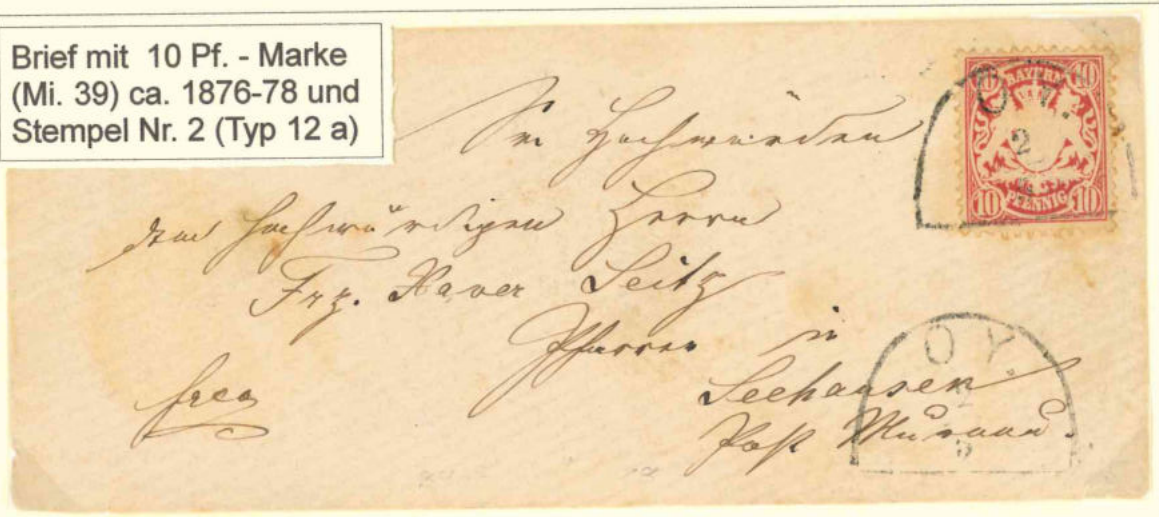 Brief mit 10 Pf. - Marke
(Mi. 39) ca. 1876-78 und
Stempel Nr. 2 (Typ 12 a)
BAYERN
10 10
OY.
2
10 PFENNIG 10
Sr. Hochwürden
dem hochwürdigen Herrn
Frz. Xaver Seitz
Pfarrer in
Seehausen
frco
Post Murnau.
OY.
5